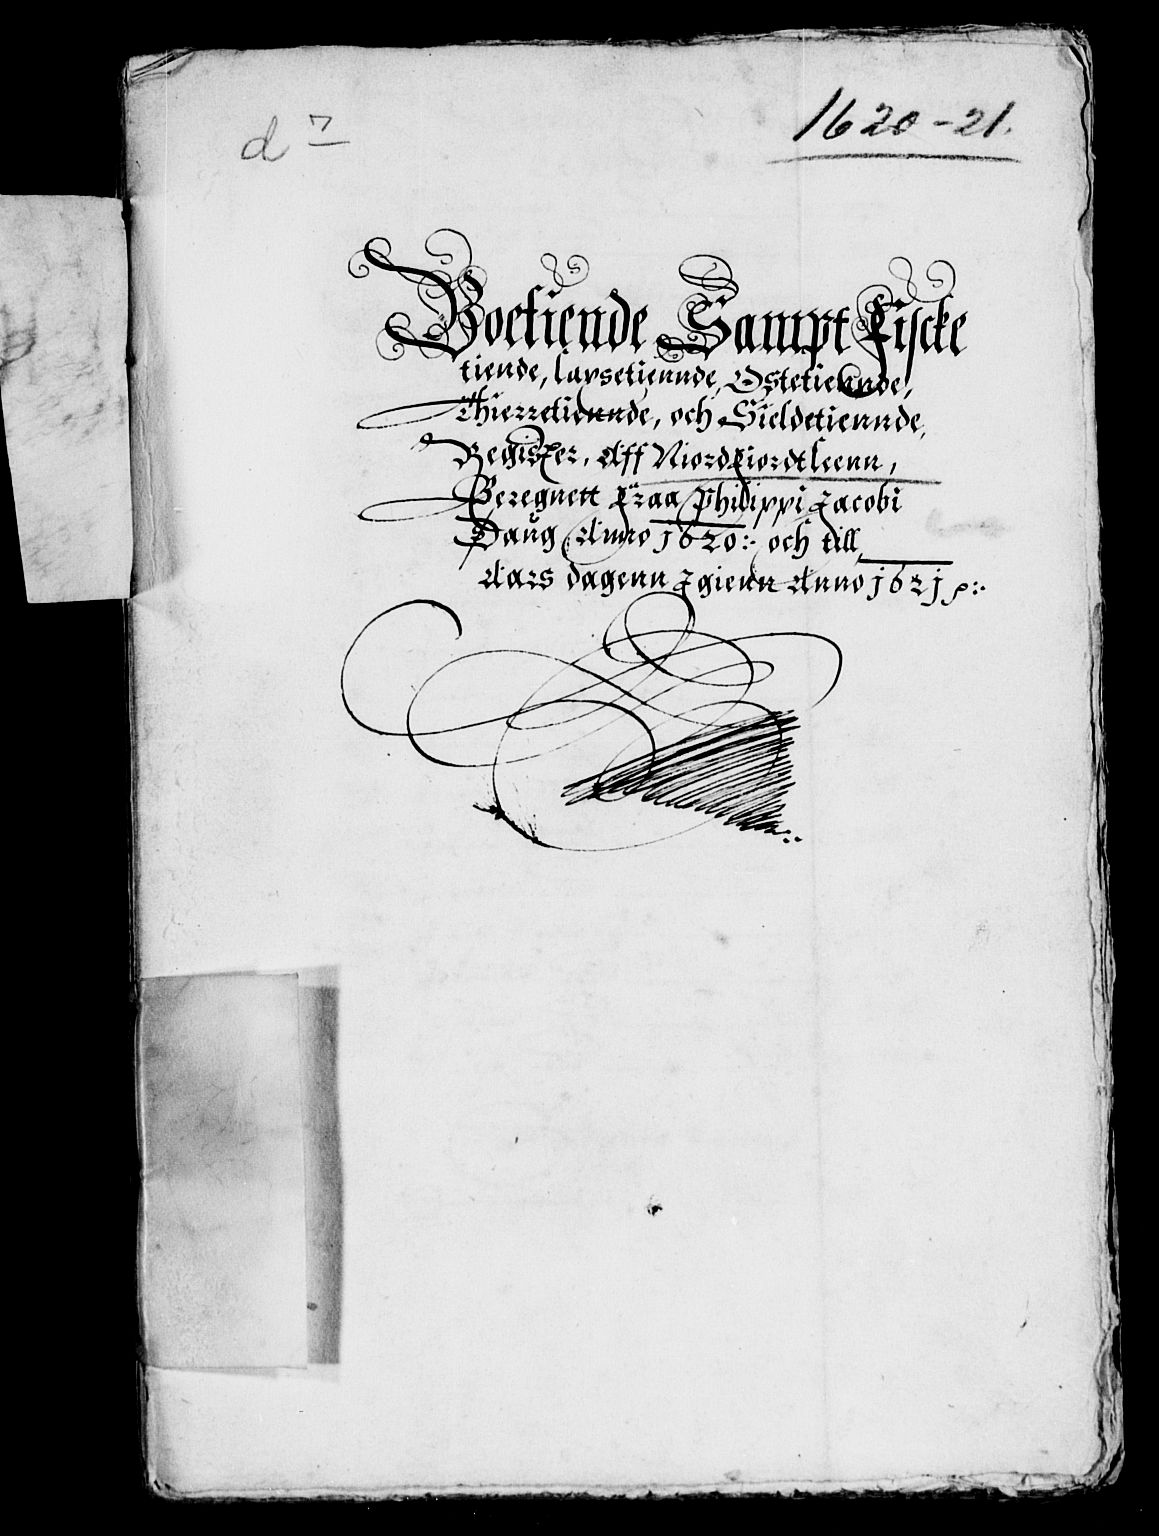 d 7
1620-21.
Koetiende Sampt Fiscke
tiende, laxsetiennde, Ostetiennde,
Thierretiennde, och Sieldetiennde,
Register, Aff Niordfiordtleenn,
Beregnett Fraa Philippi Jacobi
Daug Anno 1620: och till
Aars dagenn Igienn Anno 1621